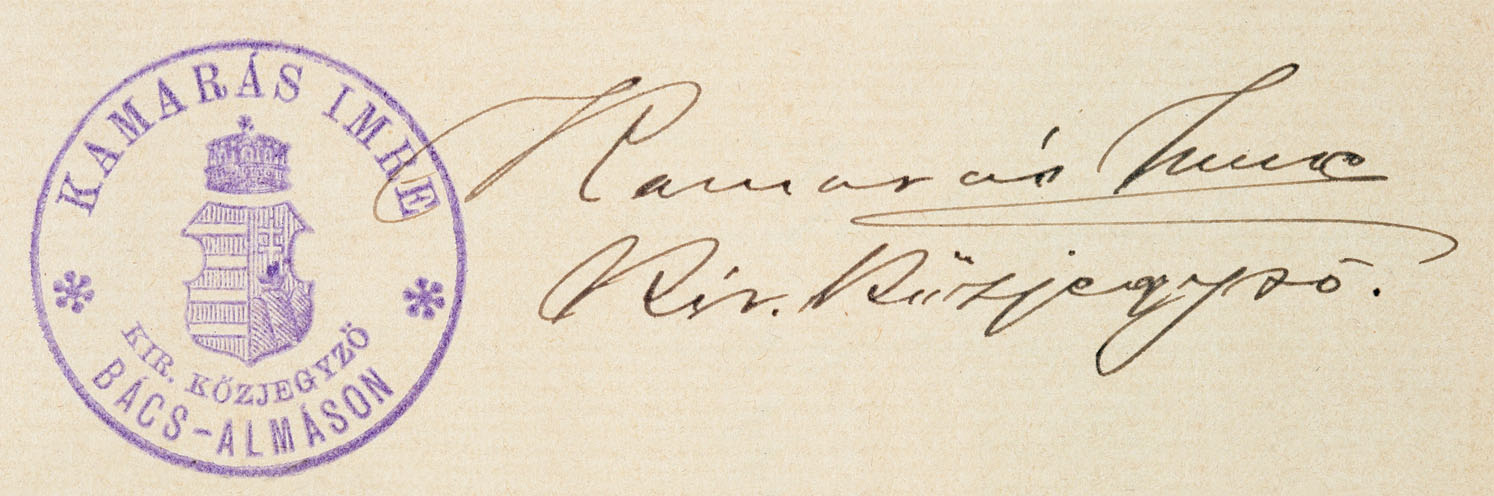 KAMARÁS IMRE
KIR. KÖZJEGYZŐ
BÁCS-ALMÁSON
Kamarás Imre
Kir. Közjegyző.